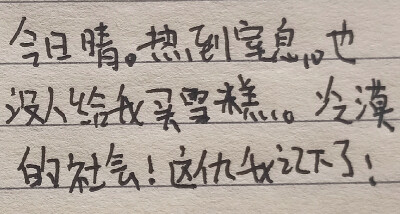 今日晴。热到窒息。也
没人给我买雪糕。冷漠
的社会！这仇我记下了！